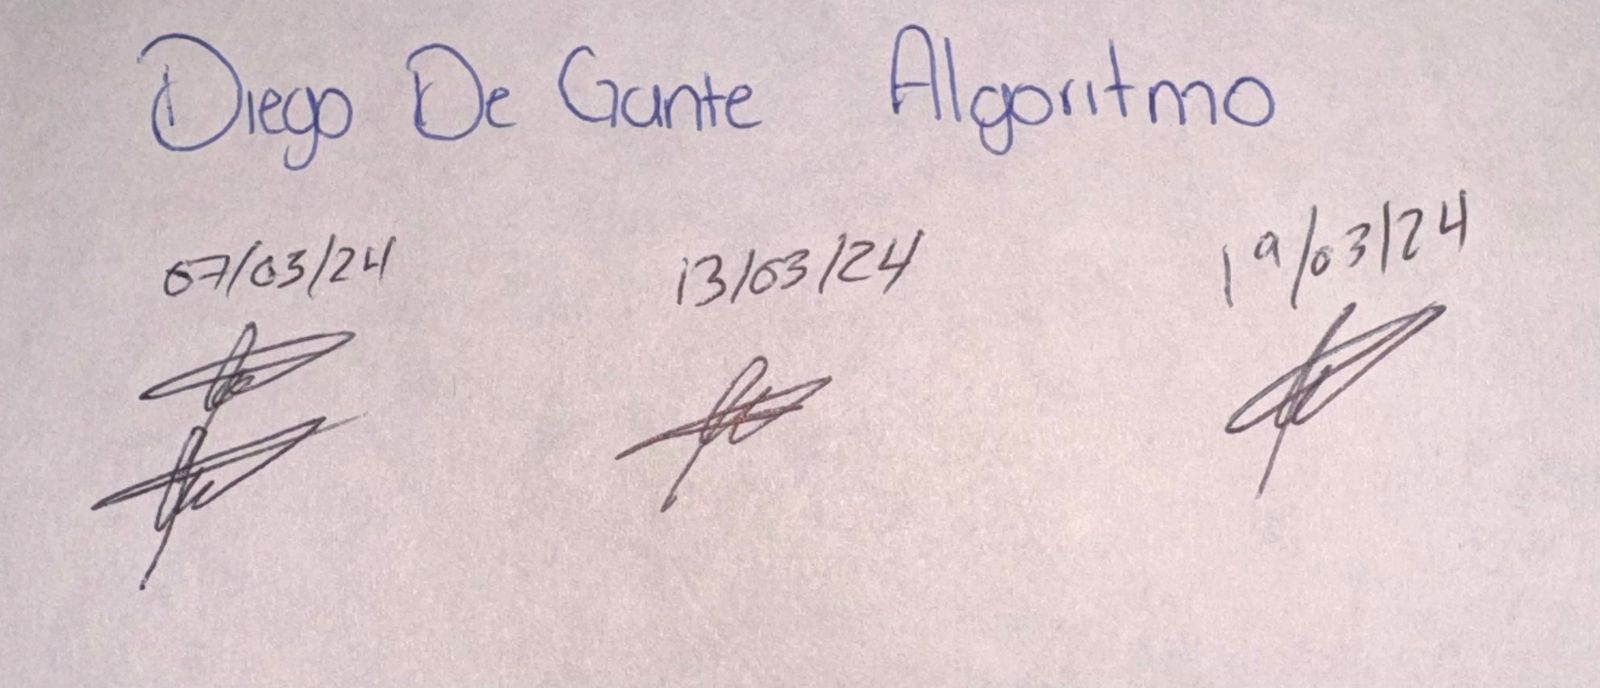 Diego De Gante Algoritmo
07/03/24 13/03/24 19/03/24